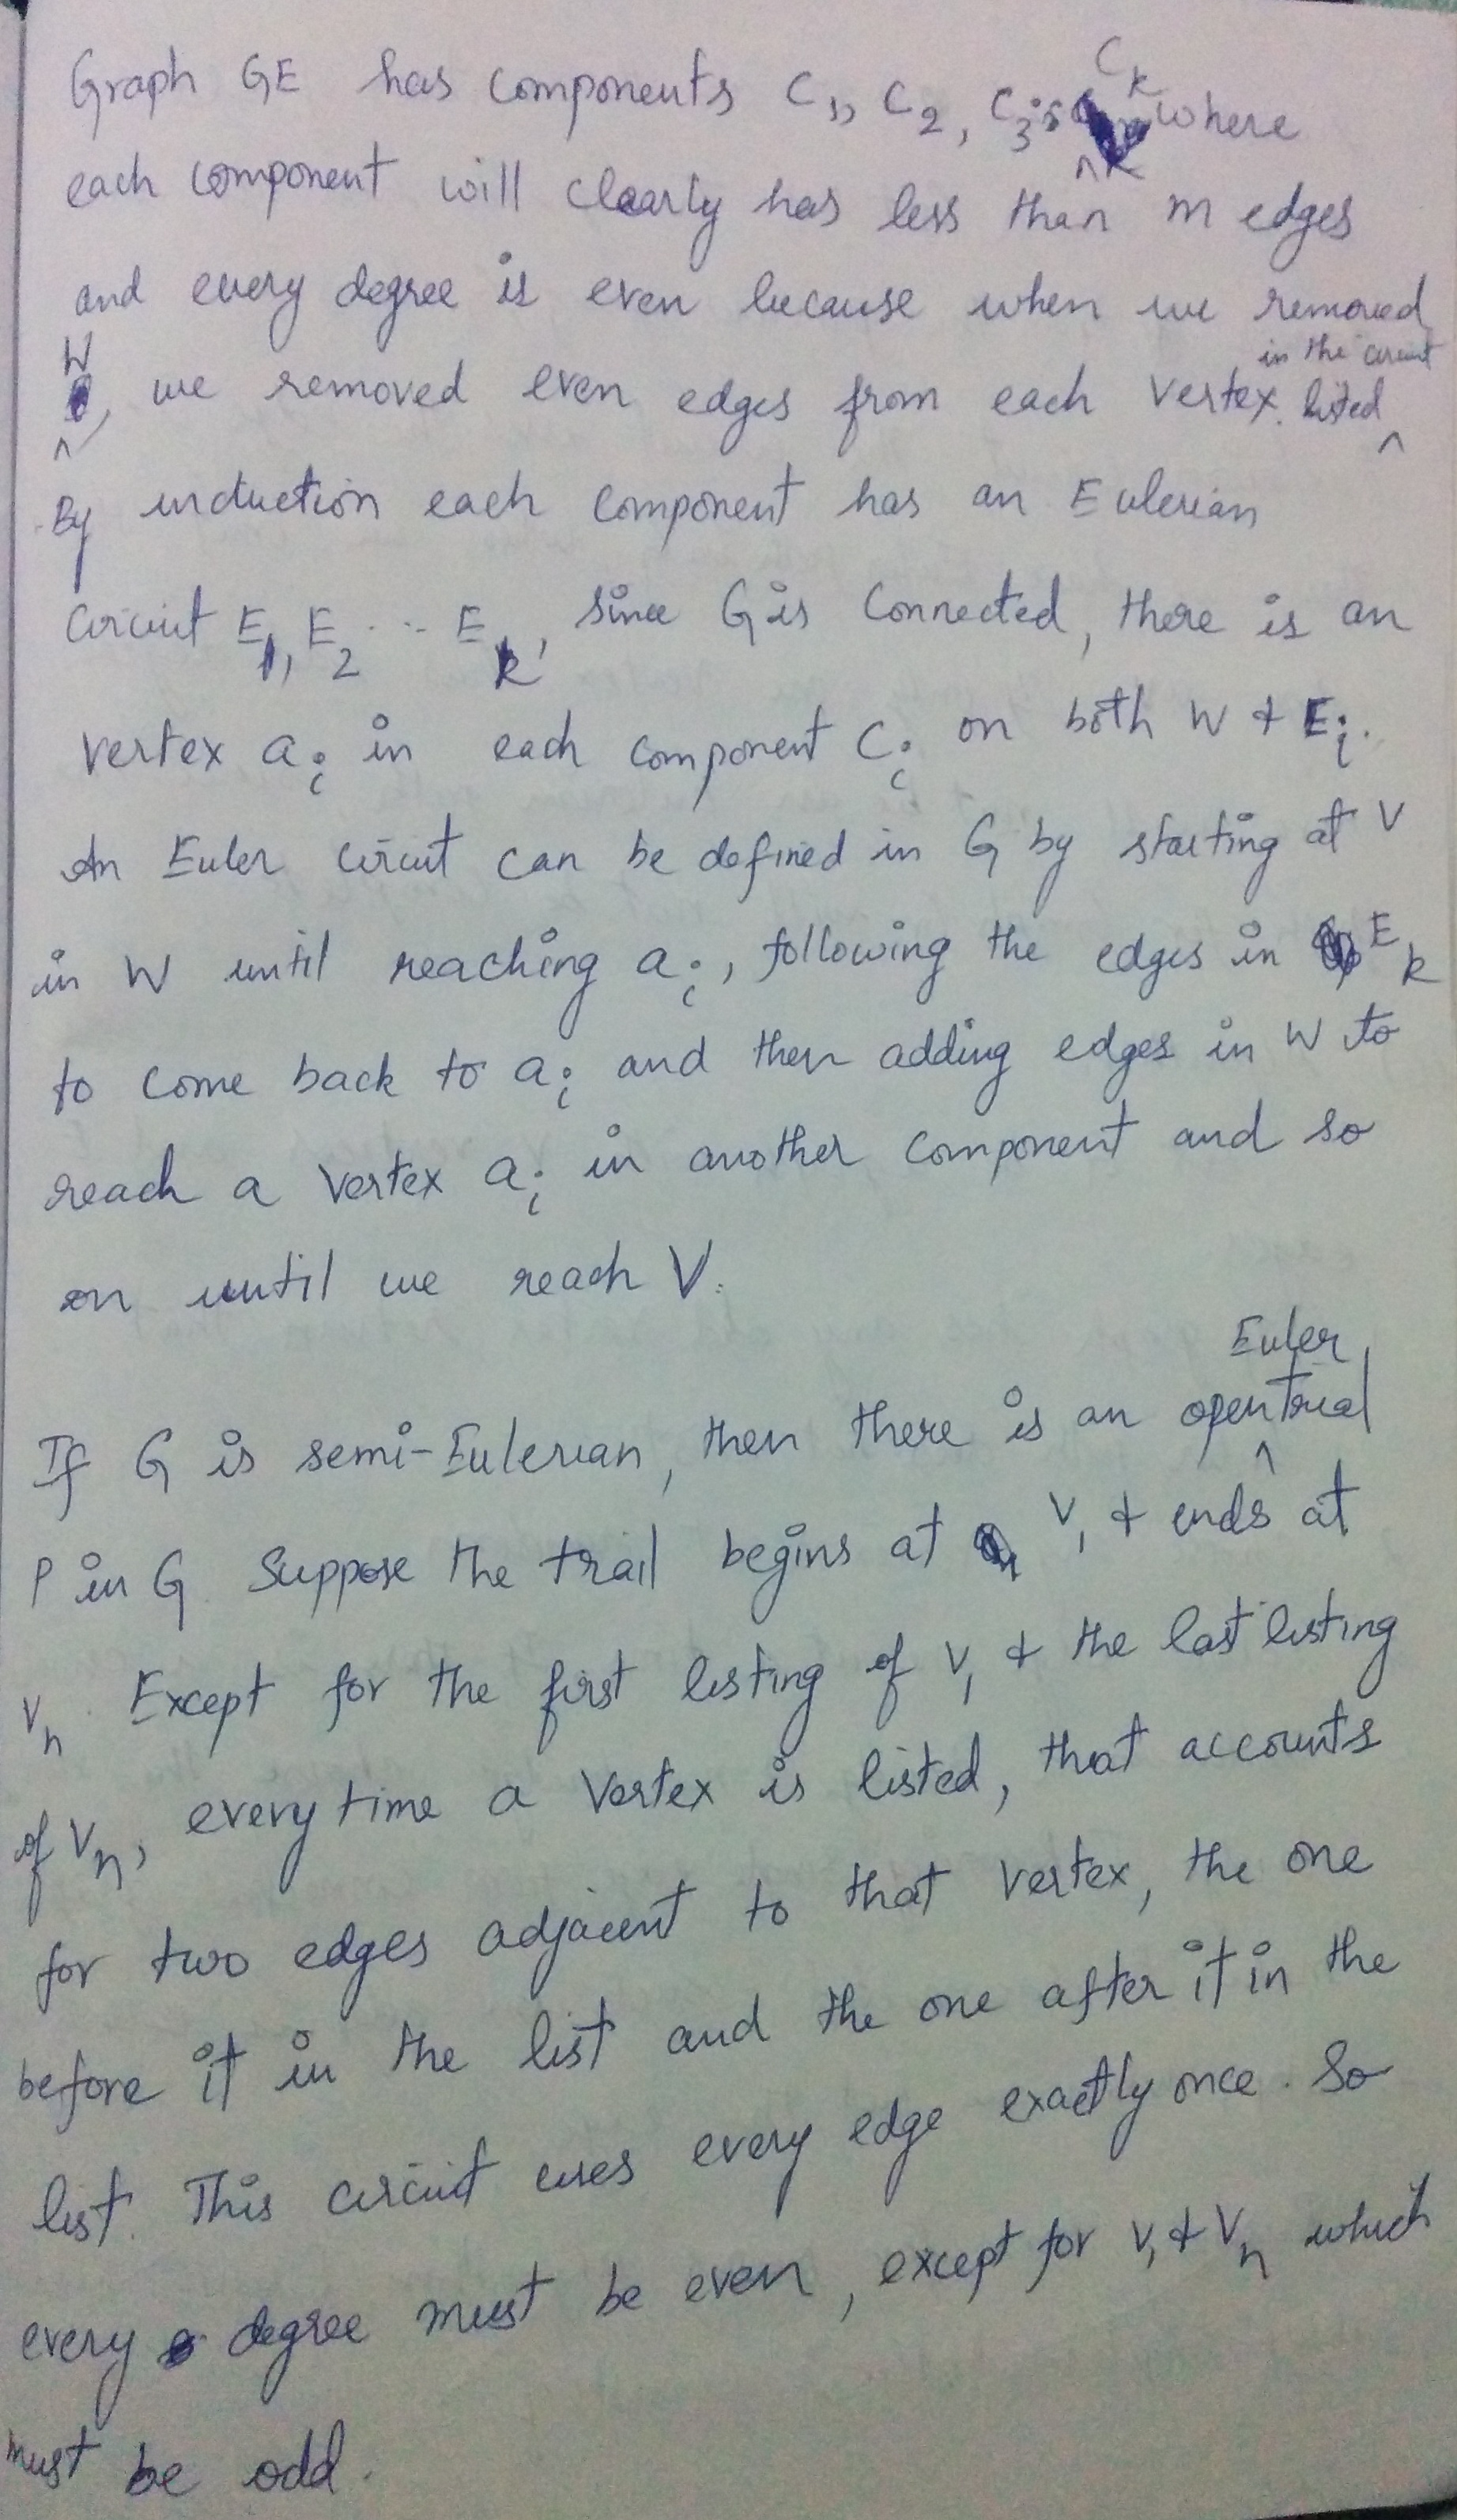 Graph GE has components C1, C2, C3, Ck where
each component will clearly has less than m edges
and every degree is even because when we removed
W, we removed even edges from each vertex. listed in the circuit
By induction each component has an Eulerian
circuit E1, E2 ... Ek, since G is connected, there is an
vertex ai in each component Ci on both W & Ei.
An Euler circuit can be defined in G by starting at V
in W until reaching ai, following the edges in Ek
to come back to ai and then adding edges in W to
reach a vertex ai in another component and so
on until we reach V.
If G is semi-Eulerian, then there is an open Euler trial
P in G. Suppose the trail begins at V1 & ends at
Vn. Except for the first listing of V1 & the last listing
of Vn, every time a vertex is listed, that accounts
for two edges adjacent to that vertex, the one
before it in the list and the one after it in the
list. This circuit uses every edge exactly once. So
every degree must be even, except for V1 & Vn which
must be odd.